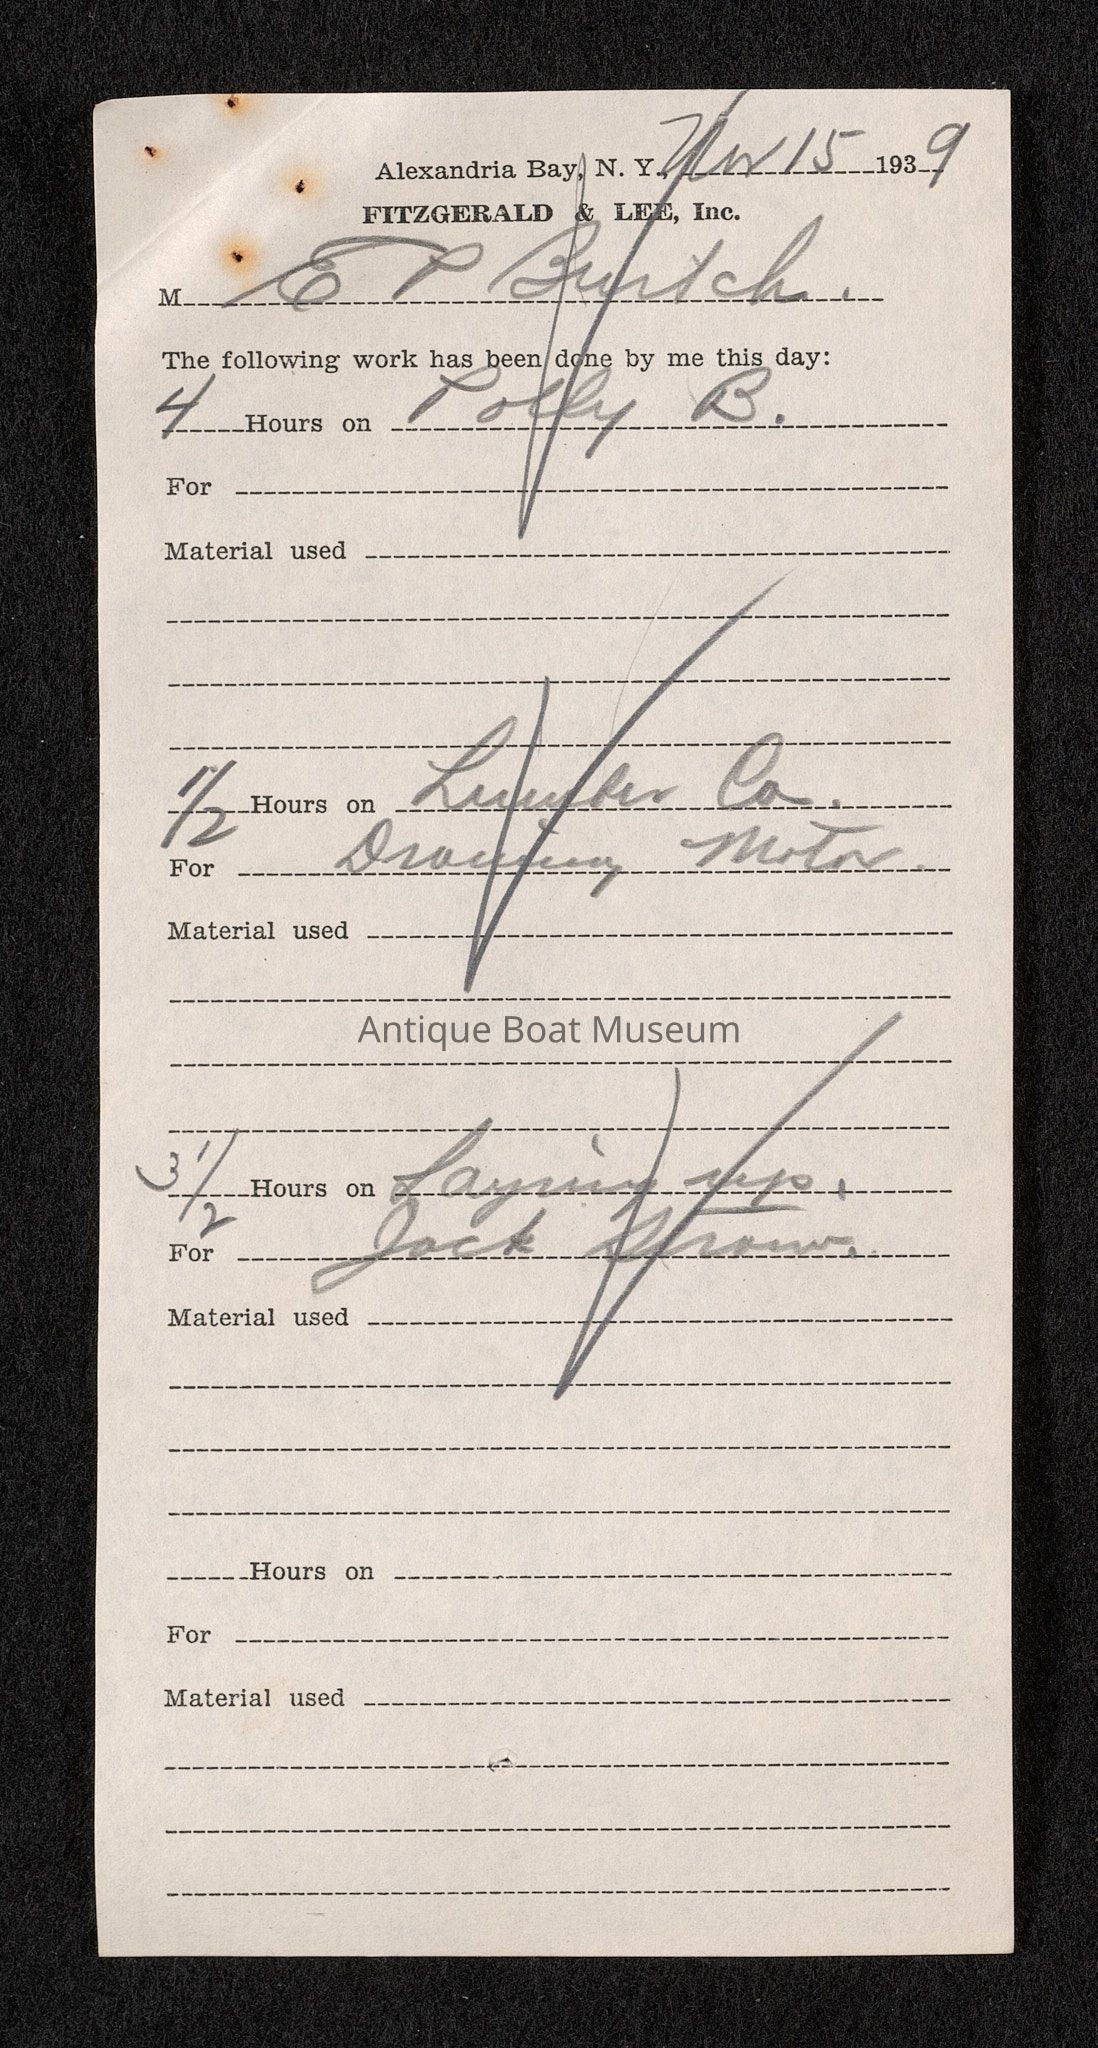 Alexandria Bay, N. Y. Nov 15 1939
FITZGERALD & LEE, Inc.
M E P Burtch.
The following work has been done by me this day:
4 Hours on Polly B.
For
Material used
1/2 Hours on Lumber Co.
For Draining Motor.
Material used
Antique Boat Museum
3 1/2 Hours on Laying up.
For Jack Straw.
Material used
Hours on
For
Material used